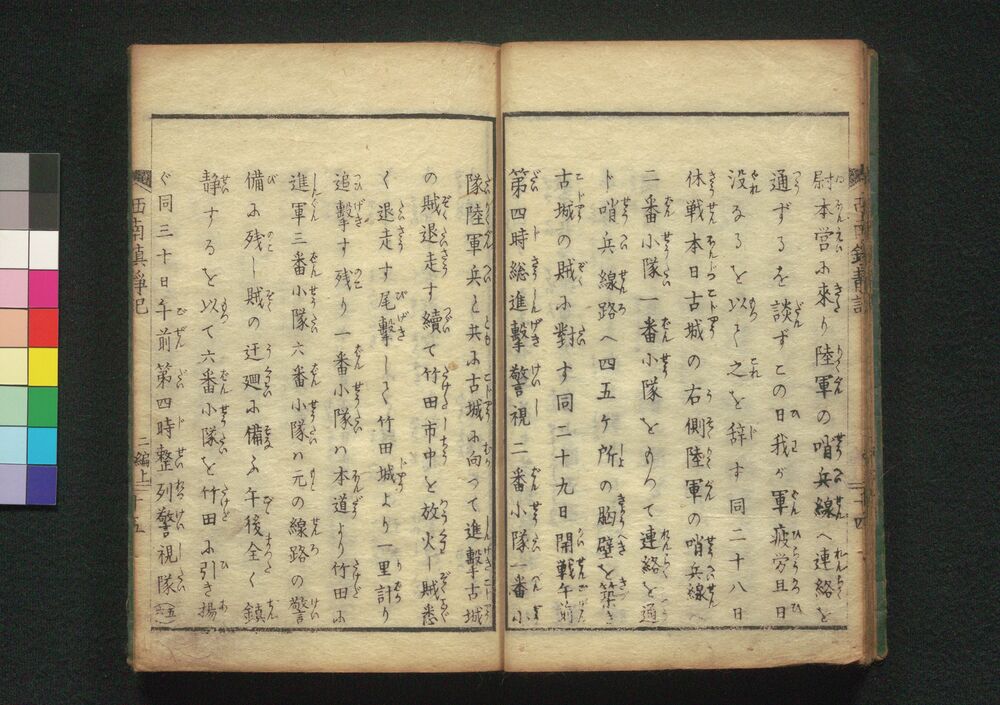 尉本営に來り陸軍の哨兵線へ連絡を
通ずるを談ずこの日我が軍疲労且日
没なるを以て之を辞す同二十八日
休戦本日古城の右側陸軍の哨兵線へ
二番小隊一番小隊をもつて連絡を通
ト哨兵線路へ四五ケ所の胸壁を築き
古城の賊に對す同二十九日開戦午前
第四時総進撃警視二番小隊一番小
隊陸軍兵と共に古城に向つて進撃古城
の賊退走す續て竹田市中を放火し賊悉
く退走す尾撃して竹田城より一里計り
追撃す残り一番小隊ハ本道より竹田に
進軍三番小隊六番小隊ハ元の線路の警
備に残し賊の迂廻に備ふ午後全く鎮
静するを以て六番小隊を竹田に引き揚
ぐ同三十日午前第四時整列警視隊
西南鎮静記
二編上
二十五